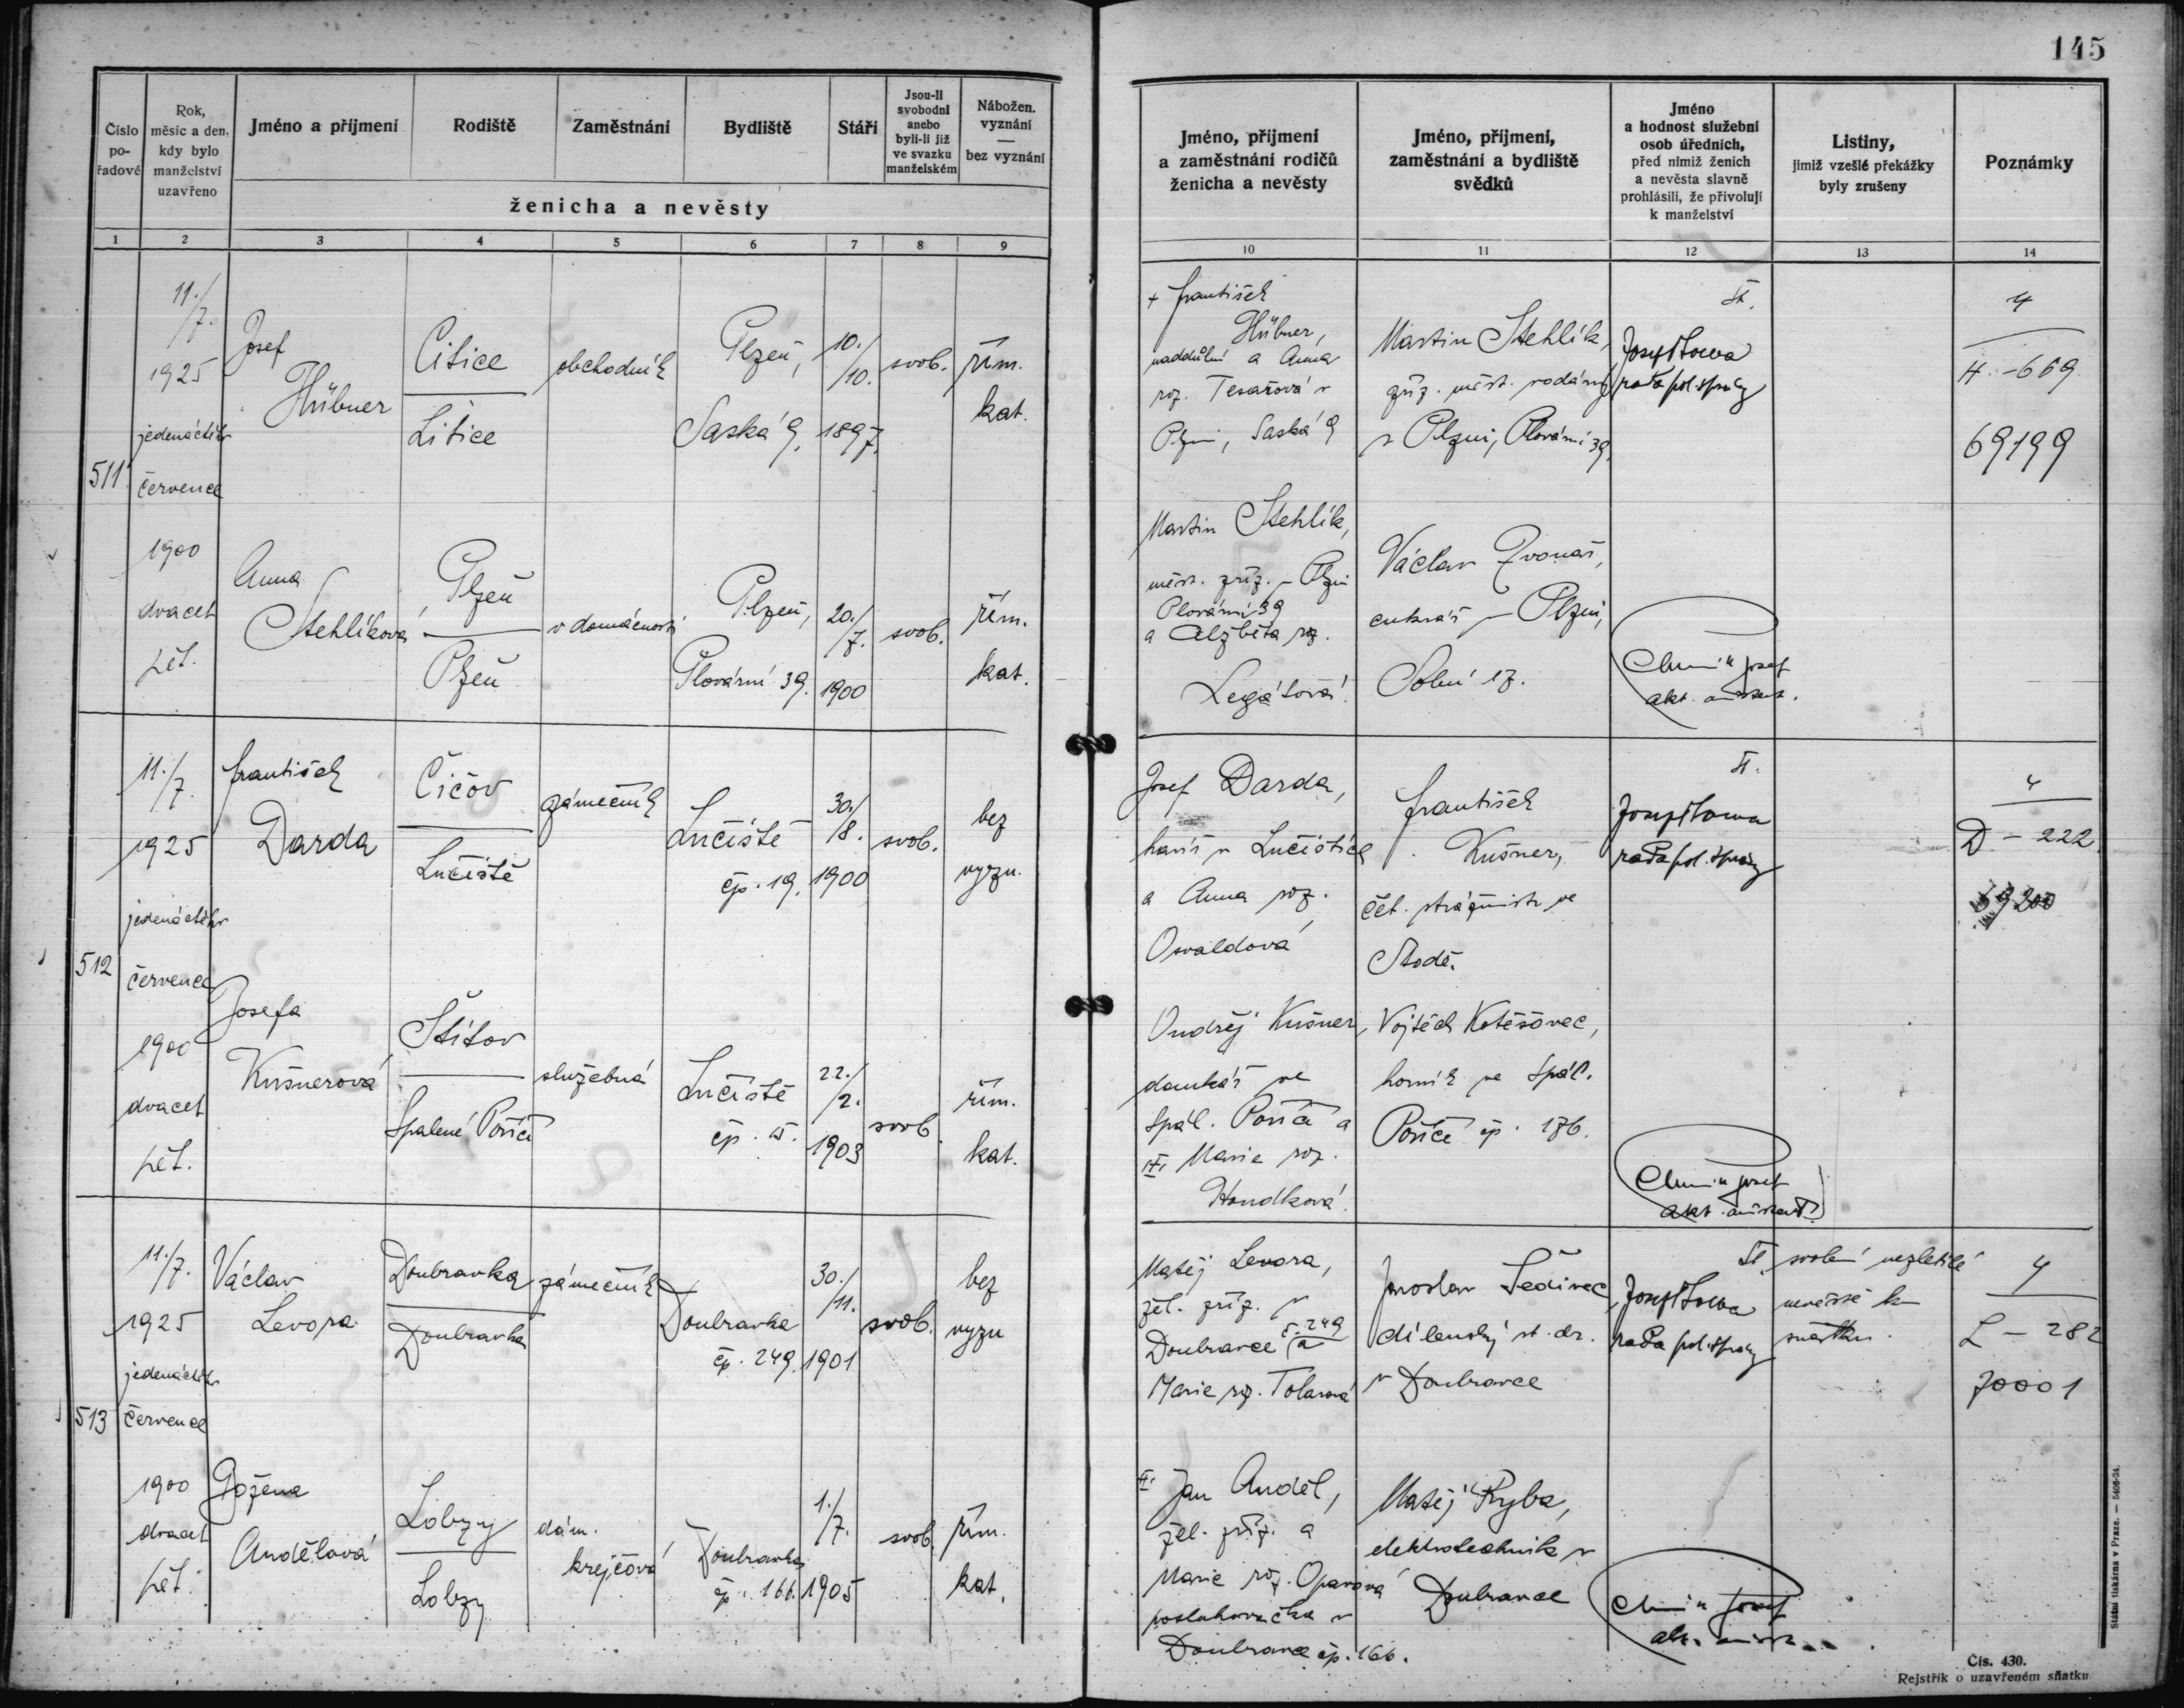 145
Číslo
po-
řadové
Rok,
měsíc a den,
kdy bylo
manželství
uzavřeno
Jméno a příjmení
Rodiště
Zaměstnání
Bydliště
Stáří
Jsou-li
svobodní
anebo
byli-li již
ve svazku
manželském
Nábožen.
vyznání
—
bez vyznání
ženicha a nevěsty
Jméno, příjmení
a zaměstnání rodičů
ženicha a nevěsty
Jméno, příjmení,
zaměstnání a bydliště
svědků
Jméno
a hodnost služební
osob úředních,
před nimiž ženich
a nevěsta slavně
prohlásili, že přivolují
k manželství
Listiny,
jimiž vzešlé překážky
byly zrušeny
Poznámky
1 2 3 4 5 6 7 8 9
10 11 12 13 14
511
11./7.
1925
jedenáctého
července
1900
dvacet
pět.
Josef
Hübner
Litice
Litice
obchodník
Plzeň,
Saská 9.
10./10.
1897.
svob.
řím.
kat.
+ František
Hübner,
naddůlní a Anna
roz. Tesařová v
Plzni, Saská 9
Martin Stehlík,
zříz. měst. vodárny
v Plzni, Plovární 39.
rada pol. správy
4
H - 669
69199
Anna
Stehlíková
Plzeň
Plzeň
v domácnosti
Plzeň,
Plovární 39.
20./7.
1900
svob.
řím.
kat.
Martin Stehlík,
měst. zříz. v Plzni
Plovární 39
a Alžběta roz.
Legátová.
Václav Zvonař,
cukrář v Plzni,
Solní 17.
Josef
akt. asistent.
512
11./7.
1925
jedenáctého
července
1900
dvacet
pět.
František
Darda
Čičov
Lučiště
zámečník
Lučiště
čp. 19.
30./8.
1900
svob.
bez
vyzn.
Josef Darda,
havíř v Lučištích
a Anna roz.
Osvaldová
František
Kušner,
čet. strážmistr ve
Stodě.
rada pol. správy
4
D - 222
69200
Josefa
Kušnerová
Štítov
Spálené Poříčí
služebná
Lučiště
čp. 15.
22./2.
1903
svob.
řím.
kat.
Ondřej Kušner,
ve
Spál. Poříčí a
Marie roz.
Houdková.
Vojtěch Kotěšovec,
horník ve Spál.
Poříčí čp. 176.
Josef
akt. asistent.
513
11./7.
1925
jedenáctého
července
1900
dvacet
pět.
Václav
Levora
Doubravka
Doubravka
zámečník
Doubravka
čp. 249.
30./11.
1901
svob.
bez
vyzn
Matěj Levora,
žel. zříz. v
Doubravce č. 249 a
Marie roz. Tolarová
Jaroslav Šedivec,
dílenský st. dr.
v Doubravce
rada pol. správy
svolení nezletilé
nevěstě k
sňatku.
4
L - 282
70001
Božena
Andělová
Lobzy
Lobzy
dám.
krejčová
Doubravka
čp. 166.
1./7.
1905
svob.
řím.
kat.
Jan Anděl,
žel. zříz. a
Marie roz. Oparová
posluhovačka v
Doubravce čp. 166.
Matěj Ryba,
elektrotechnik v
Doubravce
Josef
akt. asist.
Státní tiskárna v Praze. — 5406-24.
Čís. 430.
Rejstřík o uzavřeném sňatku